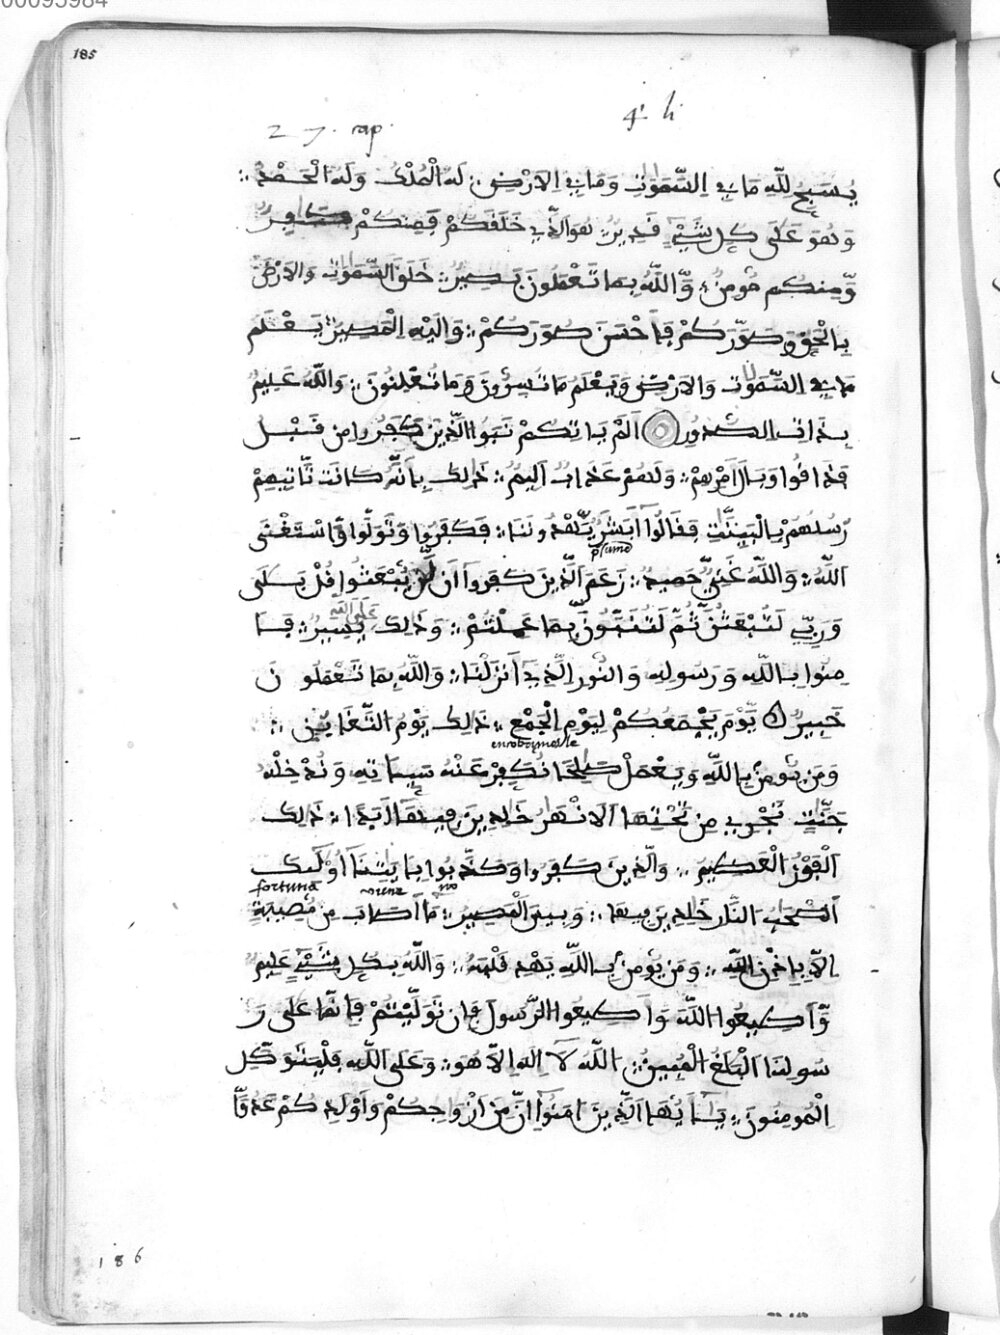 00095984
185
2 7. rap. 4. h
يُسَبِّحُ لِلّٰهِ مَا فِي السَّمَٰوَٰتِ وَمَا فِي الَارْضِ لَهُ الْمُلْكُ وَلَهُ الْحَمْدُ
وَهُوَ عَلَىٰ كُلِّ شَيْءٍ قَدِيرٌ هُوَ الَّذِي خَلَقَكُمْ فَمِنكُمْ كَافِرٌ
وَّمِنكُم مُّومِنٌ وَّاللَّهُ بِمَا تَعْمَلُونَ بَصِيرٌ خَلَقَ السَّمَٰوَٰتِ وَالَارْضَ
بِالْحَقِّ وَصَوَّرَكُمْ فَأَحْسَنَ صُوَرَكُمْ وَإِلَيْهِ الْمَصِيرُ يَعْلَمُ
مَا فِي السَّمَٰوَٰتِ وَالَارْضِ وَيَعْلَمُ مَا تُسِرُّونَ وَمَا تُعْلِنُونَ وَاللَّهُ عَلِيمٌ
بِذَاتِ الصُّدُورِ أَلَمْ يَاتِكُمْ نَبَؤُا الَّذِينَ كَفَرُوا مِن قَبْلُ
فَذَاقُوا وَبَالَ أَمْرِهِمْ وَلَهُمْ عَذَابٌ أَلِيمٌ ذَٰلِكَ بِأَنَّهُ كَانَت تَّاتِيهِمْ
رُسُلُهُمْ بِالْبَيِّنَٰتِ فَقَالُوا أَبَشَرٌ يَّهْدُونَنَا فَكَفَرُوا وَتَوَلَّوا وَّاسْتَغْنَى
اللَّهُ وَاللَّهُ غَنِيٌّ حَمِيدٌ زَعَمَ الَّذِينَ كَفَرُوا أَن لَّن يُّبْعَثُوا قُلْ بَلَىٰ
وَرَبِّي لَتُبْعَثُنَّ ثُمَّ لَتُنَبَّؤُنَّ بِمَا عَمِلْتُمْ وَذَٰلِكَ عَلَى اللَّهِ يَسِيرٌ فَـَٔا
مِنُوا بِاللَّهِ وَرَسُولِهِ وَالنُّورِ الَّذِي أَنزَلْنَا وَاللَّهُ بِمَا تَعْمَلُونَ
خَبِيرٌ يَوْمَ يَجْمَعُكُمْ لِيَوْمِ الْجَمْعِ ذَٰلِكَ يَوْمُ التَّغَابُنِ
وَمَن يُّومِنْ بِاللَّهِ وَيَعْمَلْ صَٰلِحًا نُكَفِّرْ عَنْهُ سَيِّـَٔاتِهِ وَنُدْخِلْهُ
جَنَّٰتٍ تَجْرِي مِن تَحْتِهَا الَانْهَٰرُ خَٰلِدِينَ فِيهَا أَبَدًا ذَٰلِكَ
الْفَوْزُ الْعَظِيمُ وَالَّذِينَ كَفَرُوا وَكَذَّبُوا بِـَٔايَٰتِنَا أُوْلَٰئِكَ
fortuna
no
أَصْحَٰبُ النَّارِ خَٰلِدِينَ فِيهَا وَبِيسَ الْمَصِيرُ مَا أَصَابَ مِن مُّصِيبَةٍ
إِلَّا بِإِذْنِ اللَّهِ وَمَن يُّومِنْ بِاللَّهِ يَهْدِ قَلْبَهُ وَاللَّهُ بِكُلِّ شَيْءٍ عَلِيمٌ
وَّأَطِيعُوا اللَّهَ وَأَطِيعُوا الرَّسُولَ فَإِن تَوَلَّيْتُمْ فَإِنَّمَا عَلَىٰ رَ
سُولِنَا الْبَلَٰغُ الْمُبِينُ اللَّهُ لَا إِلَٰهَ إِلَّا هُوَ وَعَلَى اللَّهِ فَلْيَتَوَكَّلِ
الْمُومِنُونَ يَٰأَيُّهَا الَّذِينَ ءَامَنُوا إِنَّ مِنَ ازْوَاجِكُمْ وَأَوْلَٰدِكُمْ عَدُوًّا
186